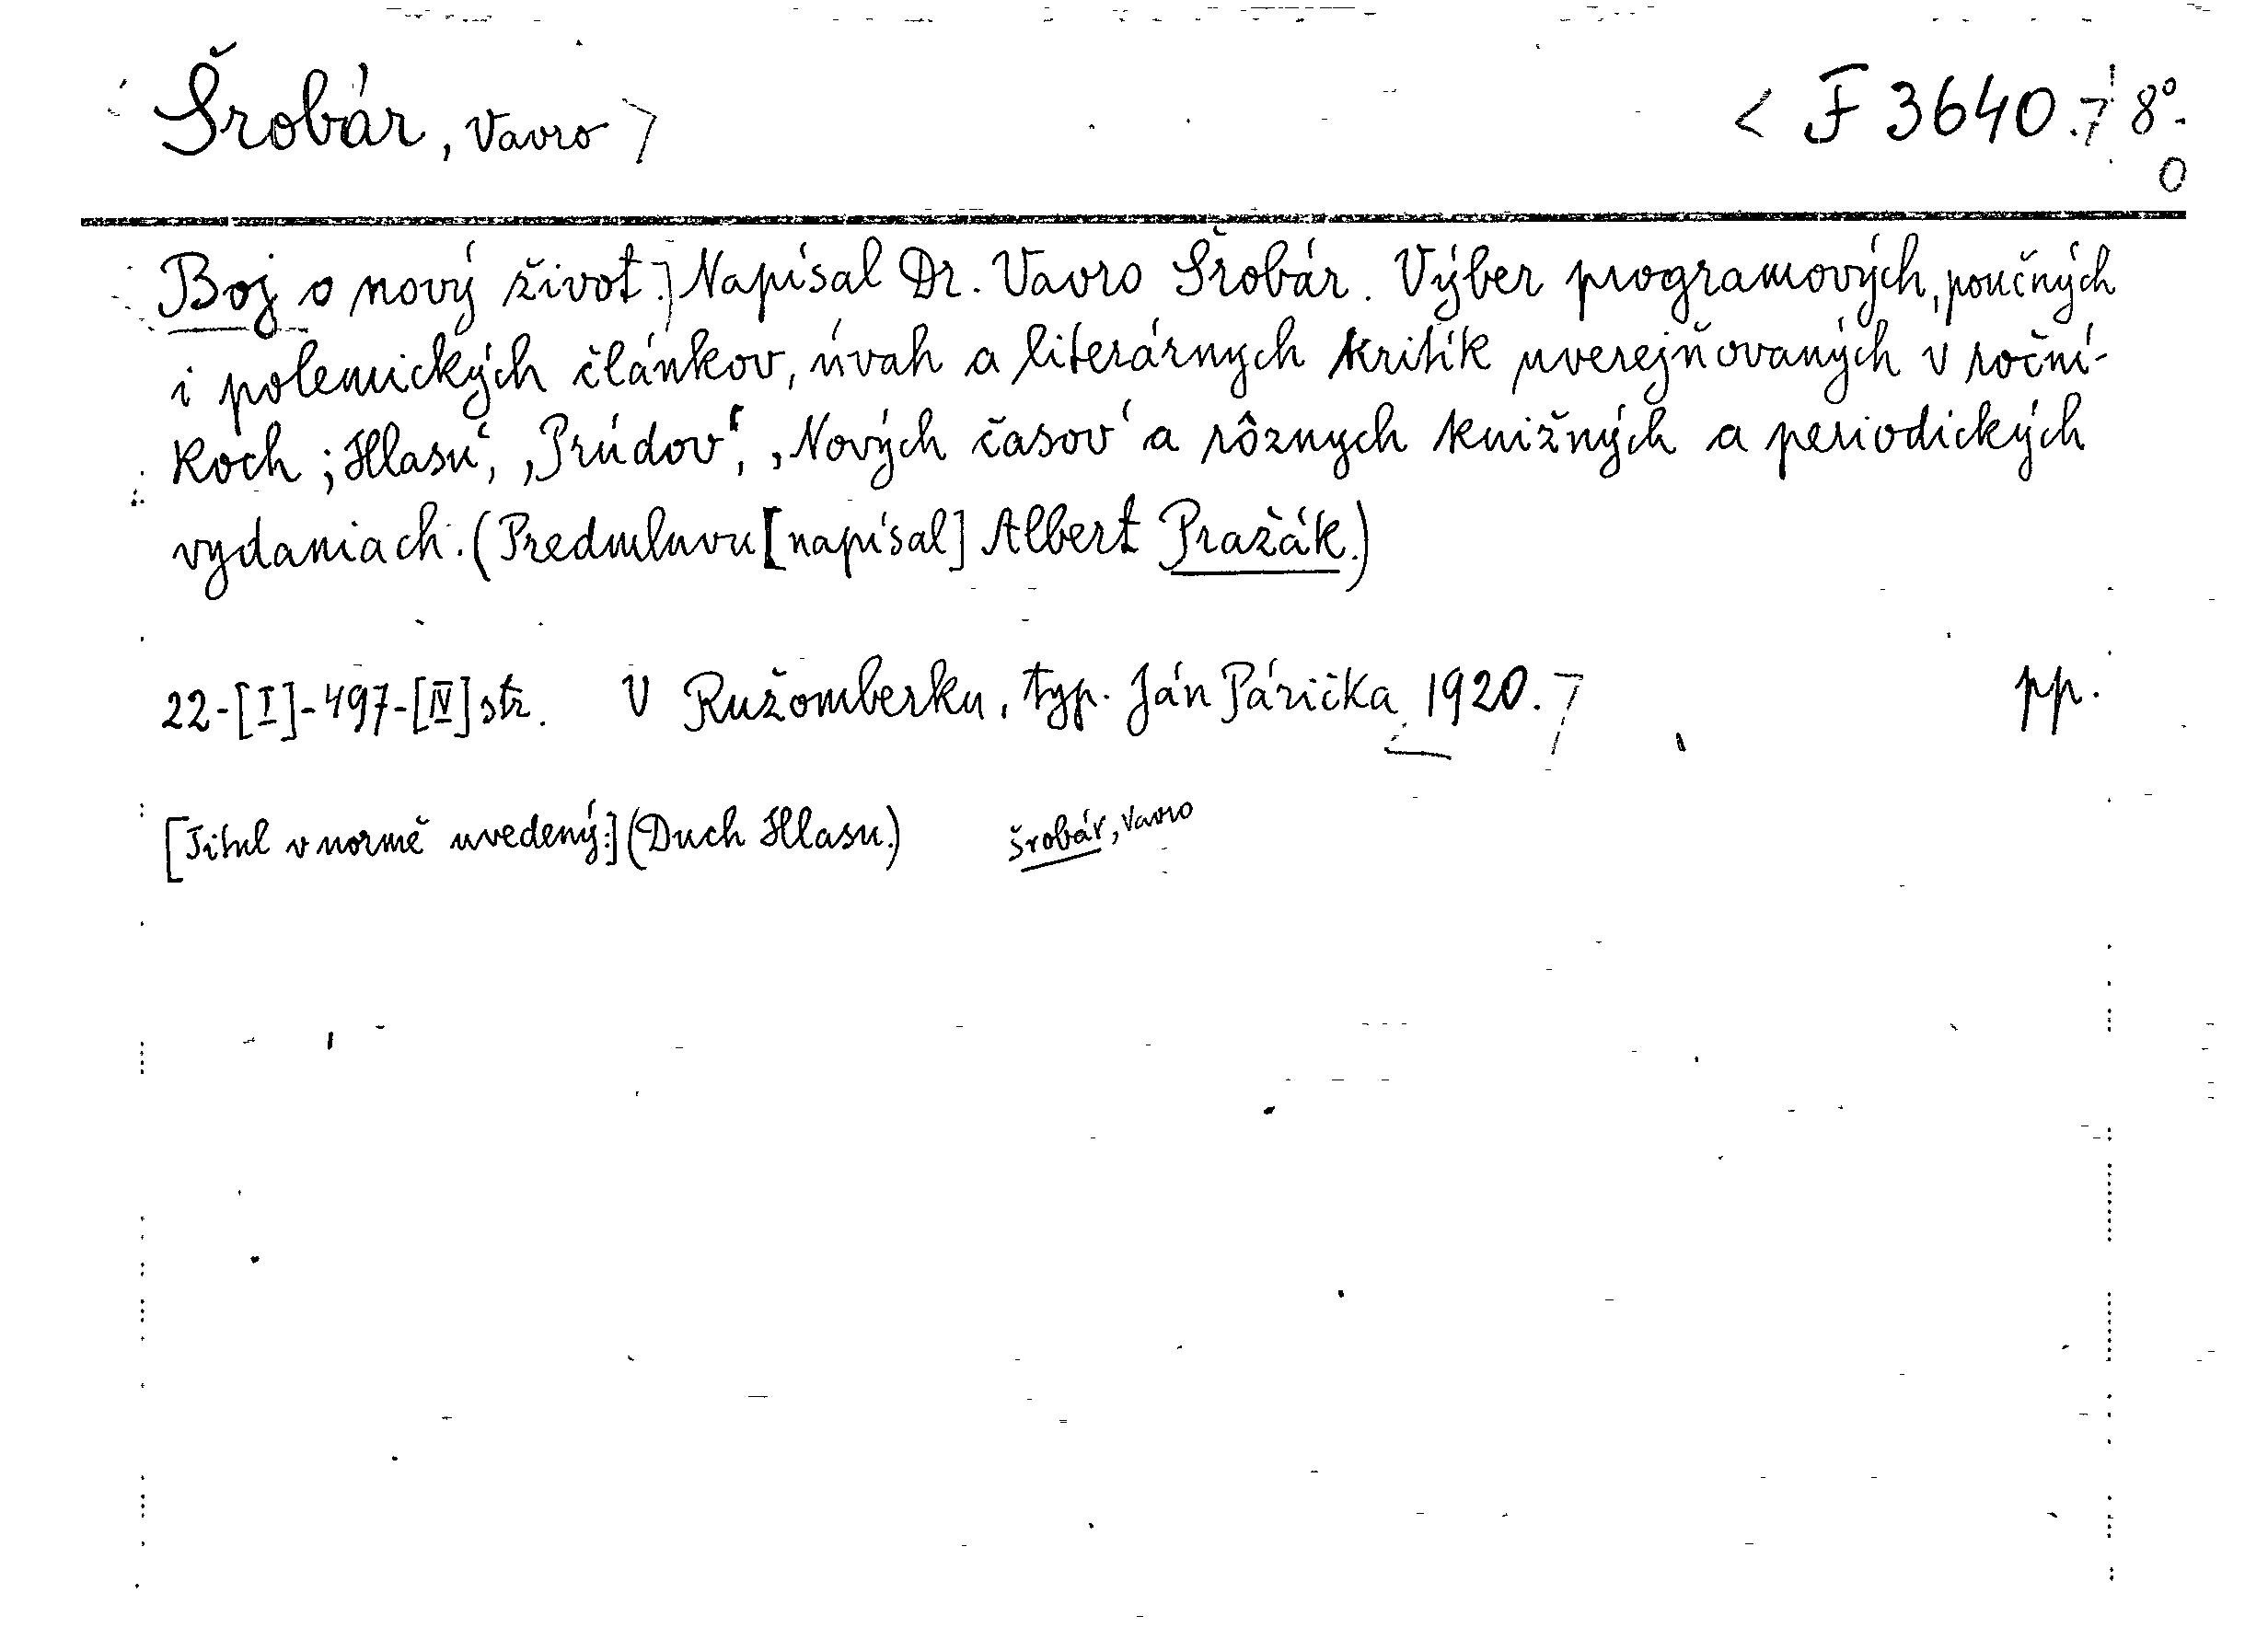 Šrobár, Vavro
F 3640. 8°.
0
Boj o nový život. Napísal Dr. Vavro Šrobár. Výber programových, poučných
i polemických článkov, úvah a literárnych kritík uverejňovaných v roční-
koch ‚Hlasu‘, ‚Prúdov‘, ‚Nových časov‘ a rôznych knižných a periodických
vydaniach. (Predmluvu [napísal] Albert Pražák.)
22-[I]-497-[IV] str. V Ružomberku, typ. Ján Párička 1920. pp.
[Titul v normě uvedený:] (Duch Hlasu.) Šrobár, Vavro